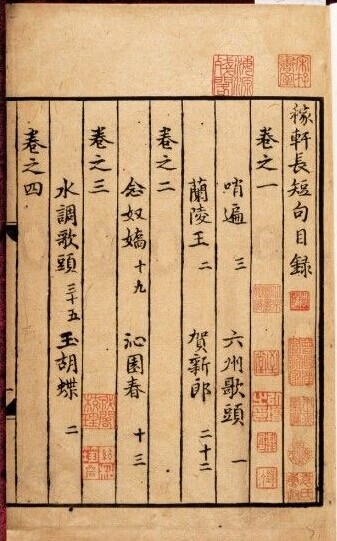 稼軒長短句目錄
卷之一
哨遍 三 六州歌頭 一
蘭陵王 二 賀新郎 二十二
卷之二
念奴嬌 十九 沁園春 十三
卷之三
水調歌頭 三十五 玉胡蝶 二
卷之四